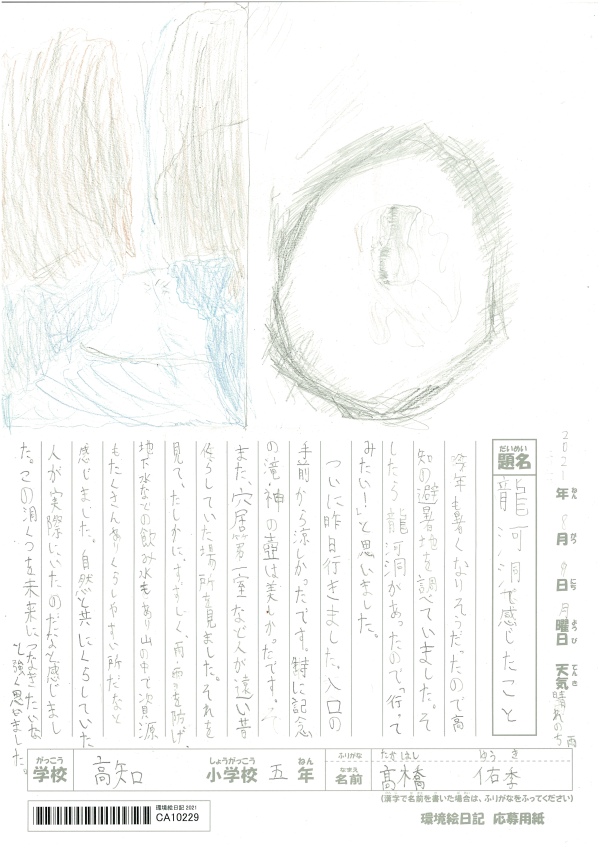 2021年ねん8月がつ9日にち月曜日ようび天気てんき晴れのち雨
題名だいめい 龍河洞で感じたこと
今年も暑くなりそうだったので高
知の避暑地を調べていました。そ
したら龍河洞があったので「行って
みたい!」と思いました。
ついに昨日行きました。入口の
手前から涼しかったです。特に記念
の滝神の壺は美しかったです。
また、穴居第一室など人が遠い昔
作らしていた場所を見ました。それを
見て、たしかに、すずしく、雨・雪を防げ、
地下水などの飲み水もあり山の中で資源
もたくさんありくらしやすい所だなと
感じました。自然と共にくらしていた
人が実際にいたのだなと感じまし
た。この洞くつを未来につなぎたいな
と強く思いました。
がっこう学校 高知 しょうがっこう小学校 五 ねん年 ふりがな なまえ名前 たかはし ゆうき 高橋 佑季
(漢字で名前を書いた場合は、ふりがなをふってください)
環境絵日記 2021
CA10229
環境絵日記 応募用紙